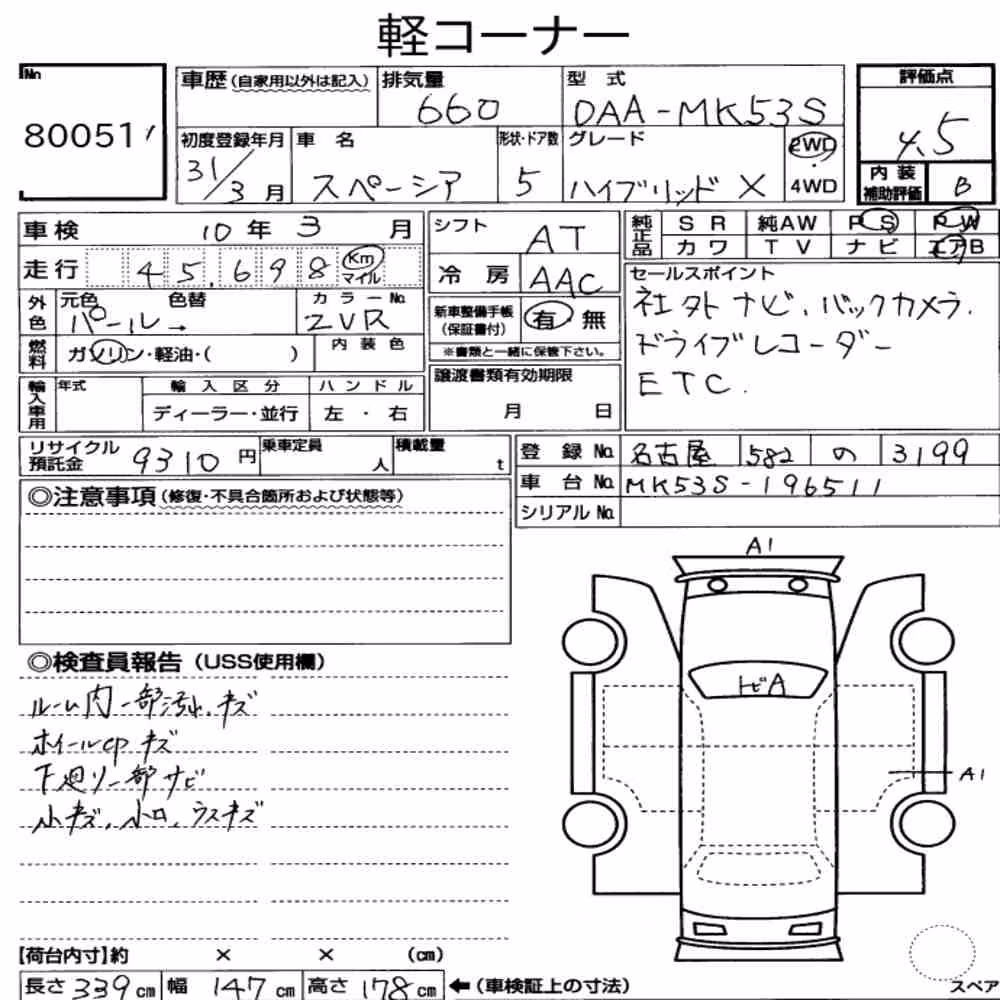 軽コーナー
No
80051
車歴(自家用以外は記入) 排気量 660 型式 DAA-MK53S
初度登録年月 31/3月 車名 スペーシア 形状・ドア数 5 グレード ハイブリッド X 2WD・4WD
評価点 4.5
内装補助評価 B
車検 10年3月
走行 45,698 Km マイル
外色 元色 パール→ 色替 カラーNo. ZVR
燃料 ガソリン・軽油・( ) 内装色
輸入車用 年式 輸入区分 ディーラー・並行 ハンドル 左・右
シフト AT
冷房 AAC
新車整備手帳(保証書付) 有 無
※書類と一緒に保管下さい。
譲渡書類有効期限
月 日
純正品 SR 純AW PS PW
カワ TV ナビ エアB
セールスポイント
社外ナビ.バックカメラ.
ドライブレコーダー
ETC.
リサイクル預託金 9310円 乗車定員 人 積載量 t
登録No. 名古屋 582 の 3199
車台No. MK53S-196511
シリアルNo.
◎注意事項(修復・不具合箇所および状態等)
◎検査員報告(USS使用欄)
ルーム内一部汚れ.キズ
ホイールcpキズ
下廻り一部サビ
小キズ.小凹.ウスキズ
A1
トビA
A1
【荷台内寸】約 × × (cm)
長さ 339cm 幅 147cm 高さ 178cm ←(車検証上の寸法)
スペア